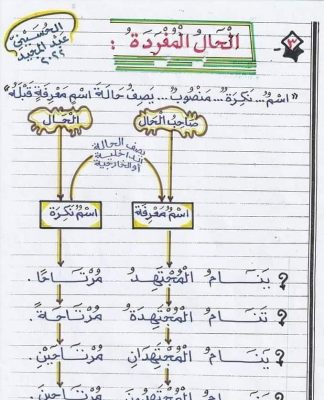 الحُسَيْنِيّ
عَبْدُ المَجِيد
٢٠٢٢
٣- الْحَالُ الْمُفْرَدَةُ :
"اسْمٌ... نَكِرَةٌ... مَنْصُوبٌ... يَصِفُ حَالَةَ اسْمٍ مَعْرِفَةٍ قَبْلَهُ"
صَاحِبُ الْحَالِ الْحَالُ
يصف الحالة
الداخلية
أو الخارجية
اسْمٌ مَعْرِفَةٌ اسْمٌ نَكِرَةٌ
؟ يَنَامُ الْمُجْتَهِدُ مُرْتَاحًا.
؟ تَنَامُ الْمُجْتَهِدَةُ مُرْتَاحَةً.
؟ يَنَامُ الْمُجْتَهِدَانِ مُرْتَاحَيْنِ.
؟ يَنَامُ الْمُجْتَهِدُونَ مُرْتَاحِينَ.